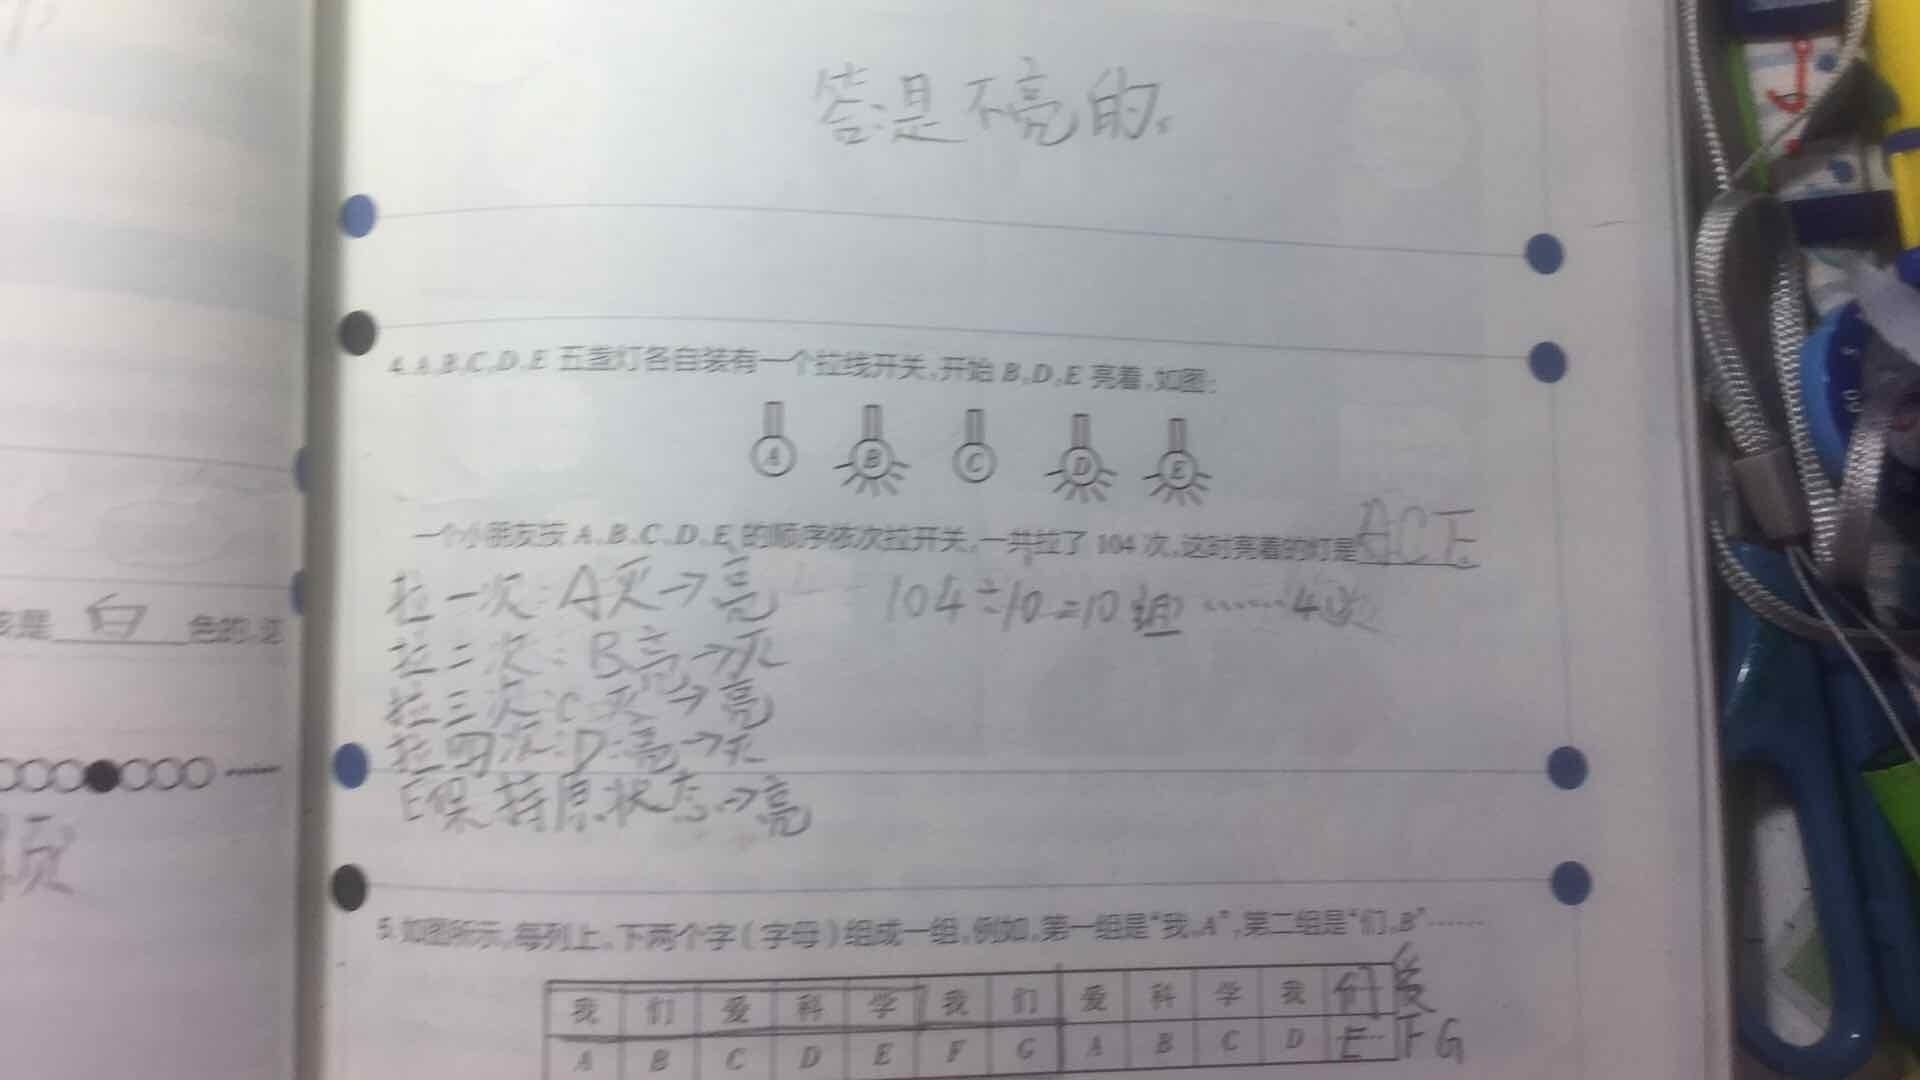 答:是不亮的。
4.A、B、C、D、E 五盏灯各自装有一个拉线开关,开始 B、D、E 亮着,如图:
A B C D E
一个小朋友按 A、B、C、D、E 的顺序依次拉开关,一共拉了 104 次,这时亮着的灯是ACE
拉一次:A灭→亮 104÷10=10组……4次
拉二次:B亮→灭
拉三次:C灭→亮
拉四次:D:亮→灭
E保持原状态→亮
是 白 色的,这
5.如图所示,每列上、下两个字(字母)组成一组,例如,第一组是“我,A”,第二组是“们,B”……
我 们 爱 科 学 我 们 爱 科 学 我 们 爱
A B C D E F G A B C D E… F G